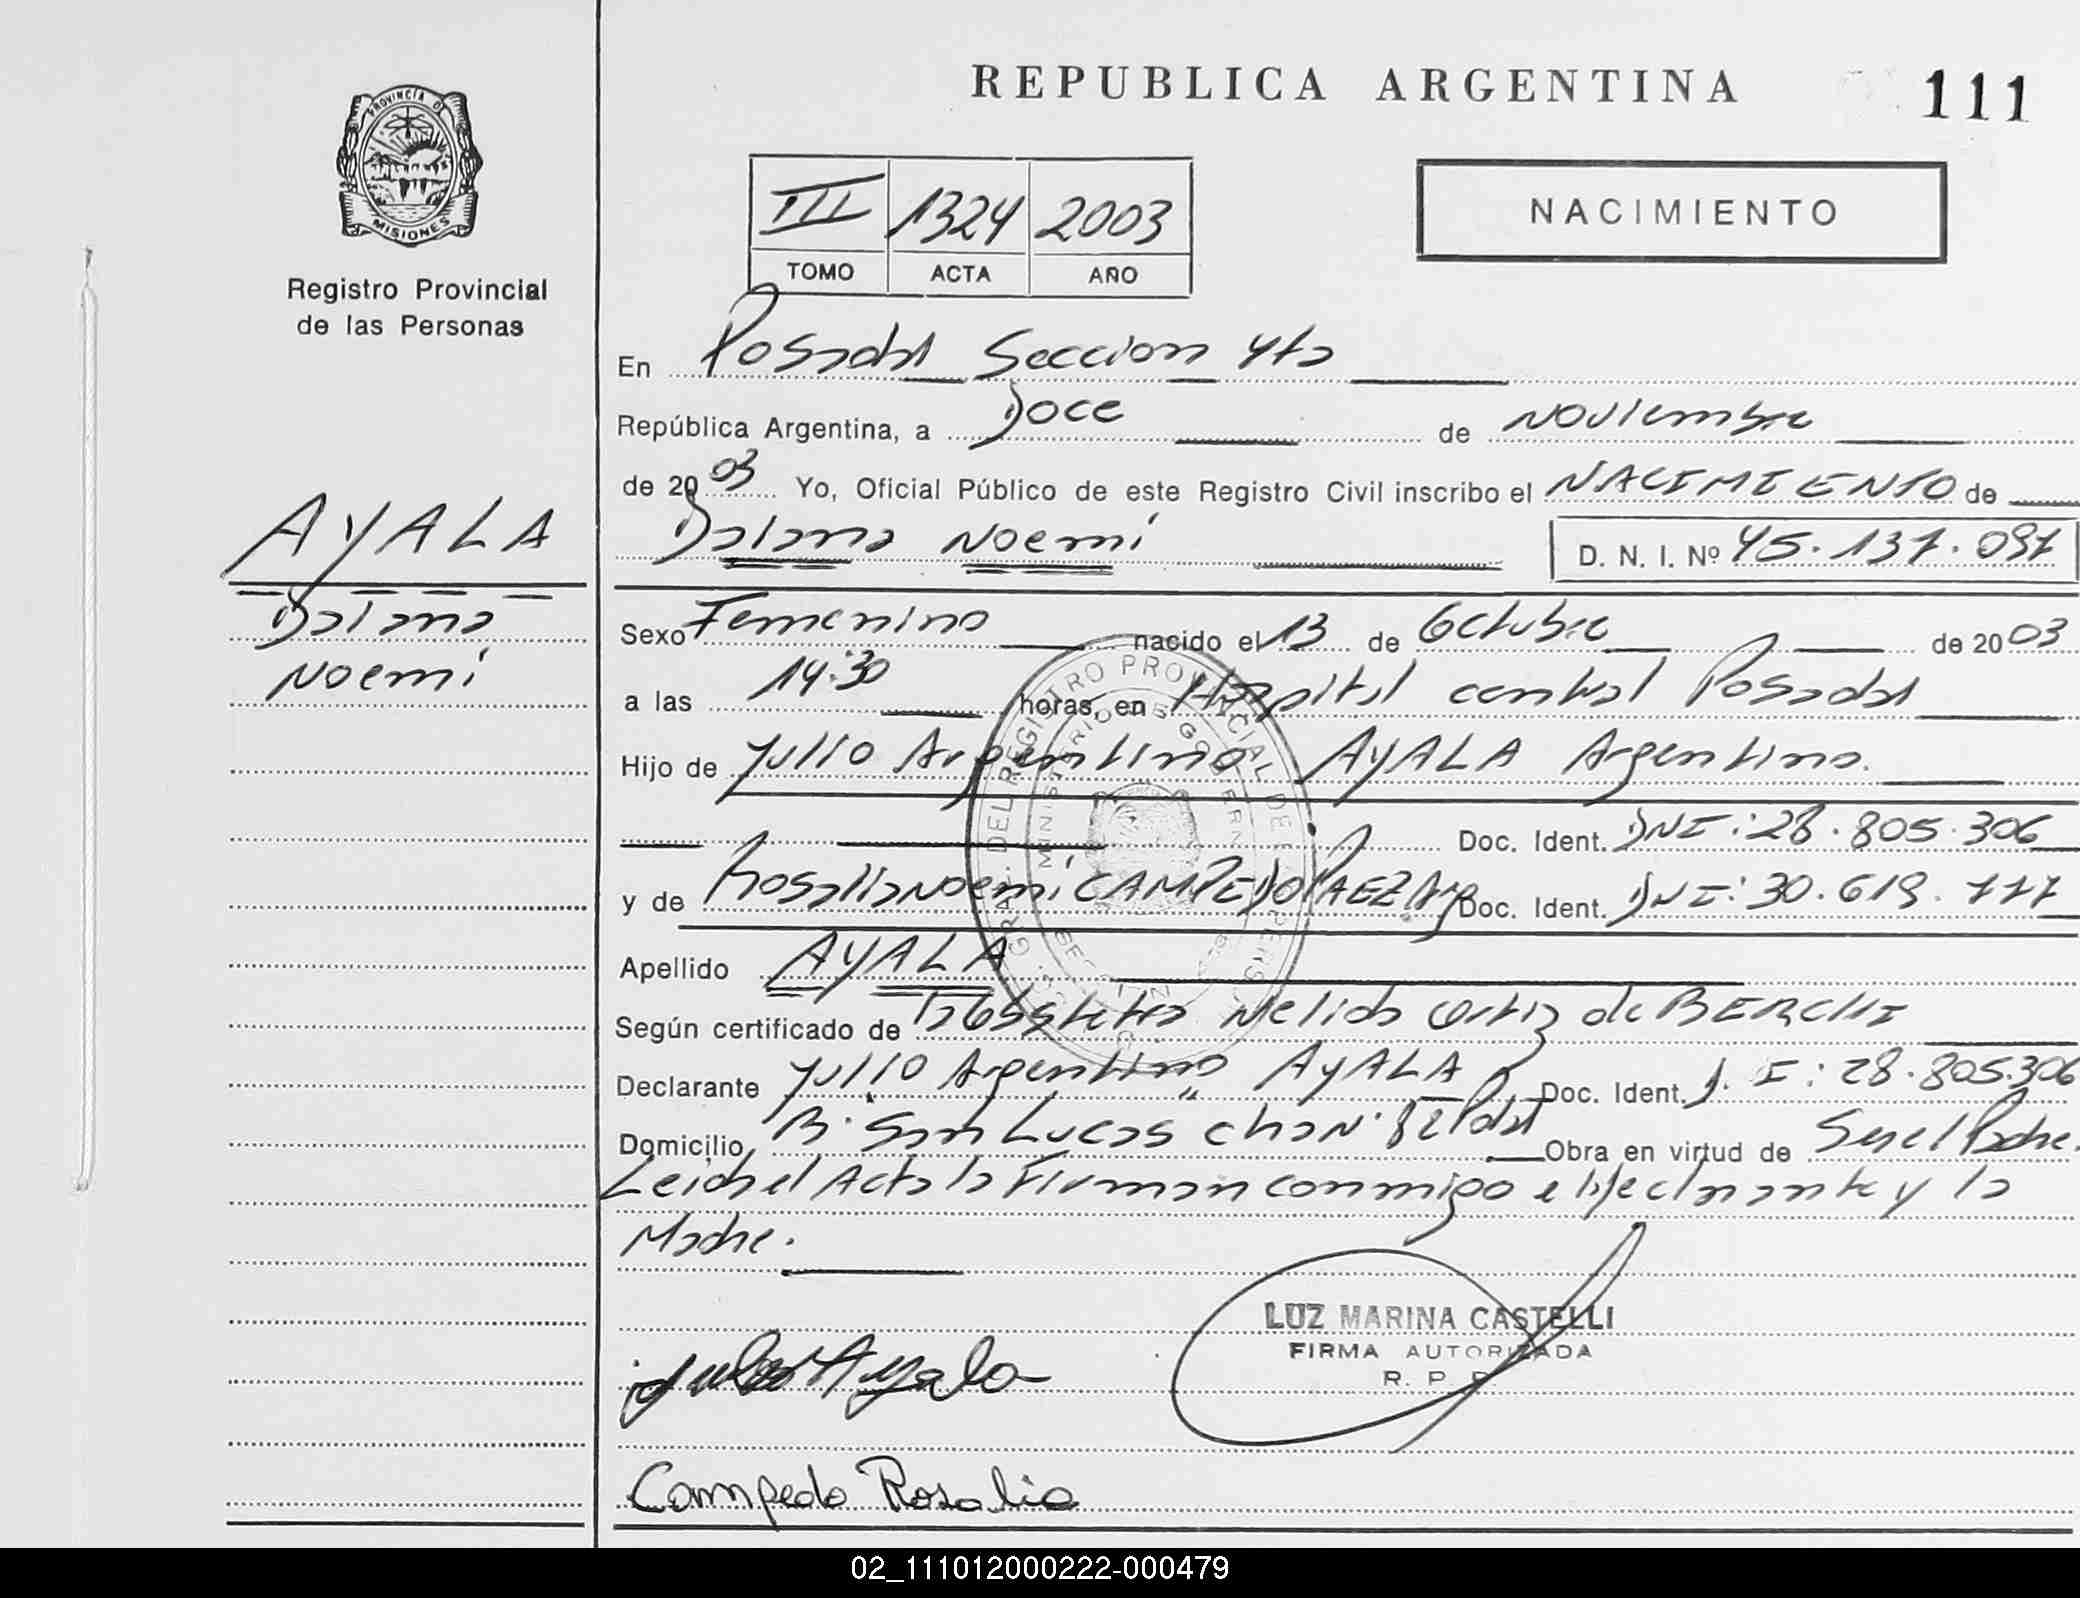 REPUBLICA ARGENTINA
111
PROVINCIA DE
MISIONES
Registro Provincial
de las Personas
III 1324 2003
TOMO ACTA AÑO
NACIMIENTO
En Posadas Seccion 4ta
República Argentina, a Doce de Noviembre
de 2003 Yo, Oficial Público de este Registro Civil inscribo el NACIMIENTO de
Daiana Noemí D. N. I. Nº 45.137.097
AYALA
Daiana
Noemí
Sexo Femenino nacido el 13 de Octubre de 2003
a las 14:30 horas, en Hospital central Posadas
Hijo de Julio Argentino AYALA Argentino.
Doc. Ident. DNI: 28.805.306
y de Rosalia Noemí CAMPEDO PAEZ Arg Doc. Ident. DNI: 30.619.777
Apellido AYALA
Según certificado de Obstetra Nelida Ortiz de BERCHI
Declarante Julio Argentino AYALA Doc. Ident. D. I: 28.805.306
Domicilio B. San Lucas Obra en virtud de Ser el Padre.
Leida el Acta la Firman conmigo el declarante y la
Madre.
LUZ MARINA CASTELLI
FIRMA AUTORIZADA
R. P. P.
Julio Ayala
Campedo Rosalia
02_111012000222-000479